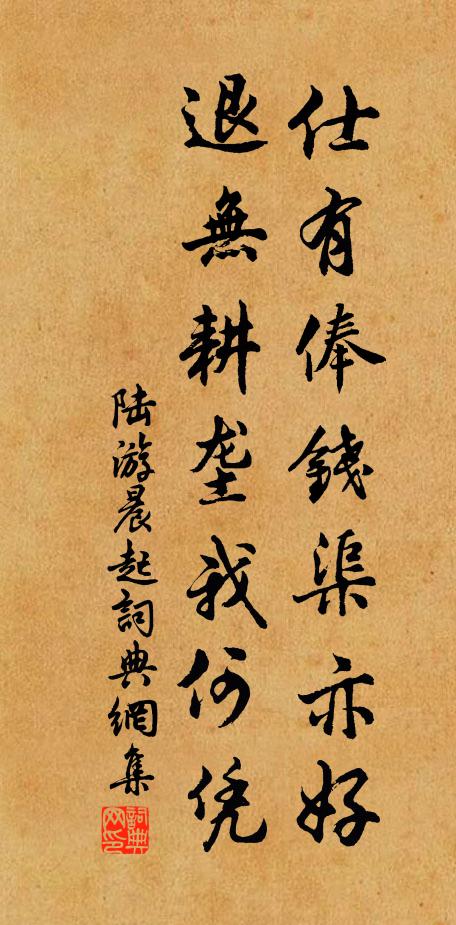 仕有俸錢渠亦好
退無耕垄我何凭
陆游晨起詞典網集
詞典网印